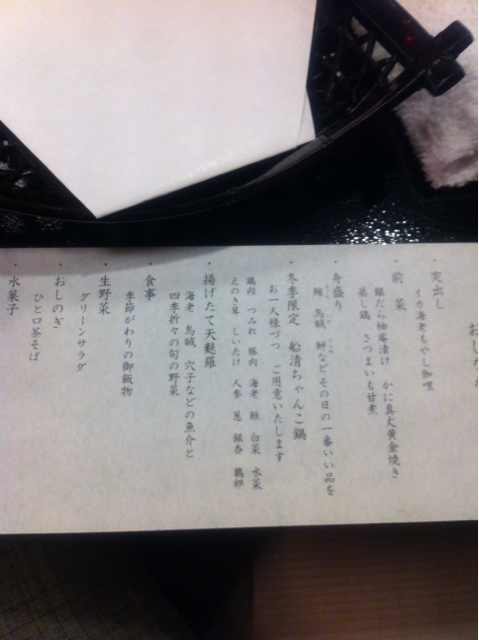 おしながき
・突出し
イカ海老もやし伽哩
・前菜
銀だら柚庵漬け かに真丈黄金焼き
蒸し鶏 さつまいも甘煮
・舟盛り
鮪 烏賊 鮮などその日の一番いい品を
・冬季限定 船清ちゃんこ鍋
お一人様づつ ご用意いたします
鶏肉 つみれ 豚肉 海老 鮭 白菜 水菜
えのき茸 しいたけ 人参 葱 銀杏 鶉卵
・揚げたて天麩羅
海老 烏賊 穴子などの魚介と
四季折々の旬の野菜
・食事
季節がわりの御飯物
・生野菜
グリーンサラダ
・おしのぎ
ひと口茶そば
・水菓子